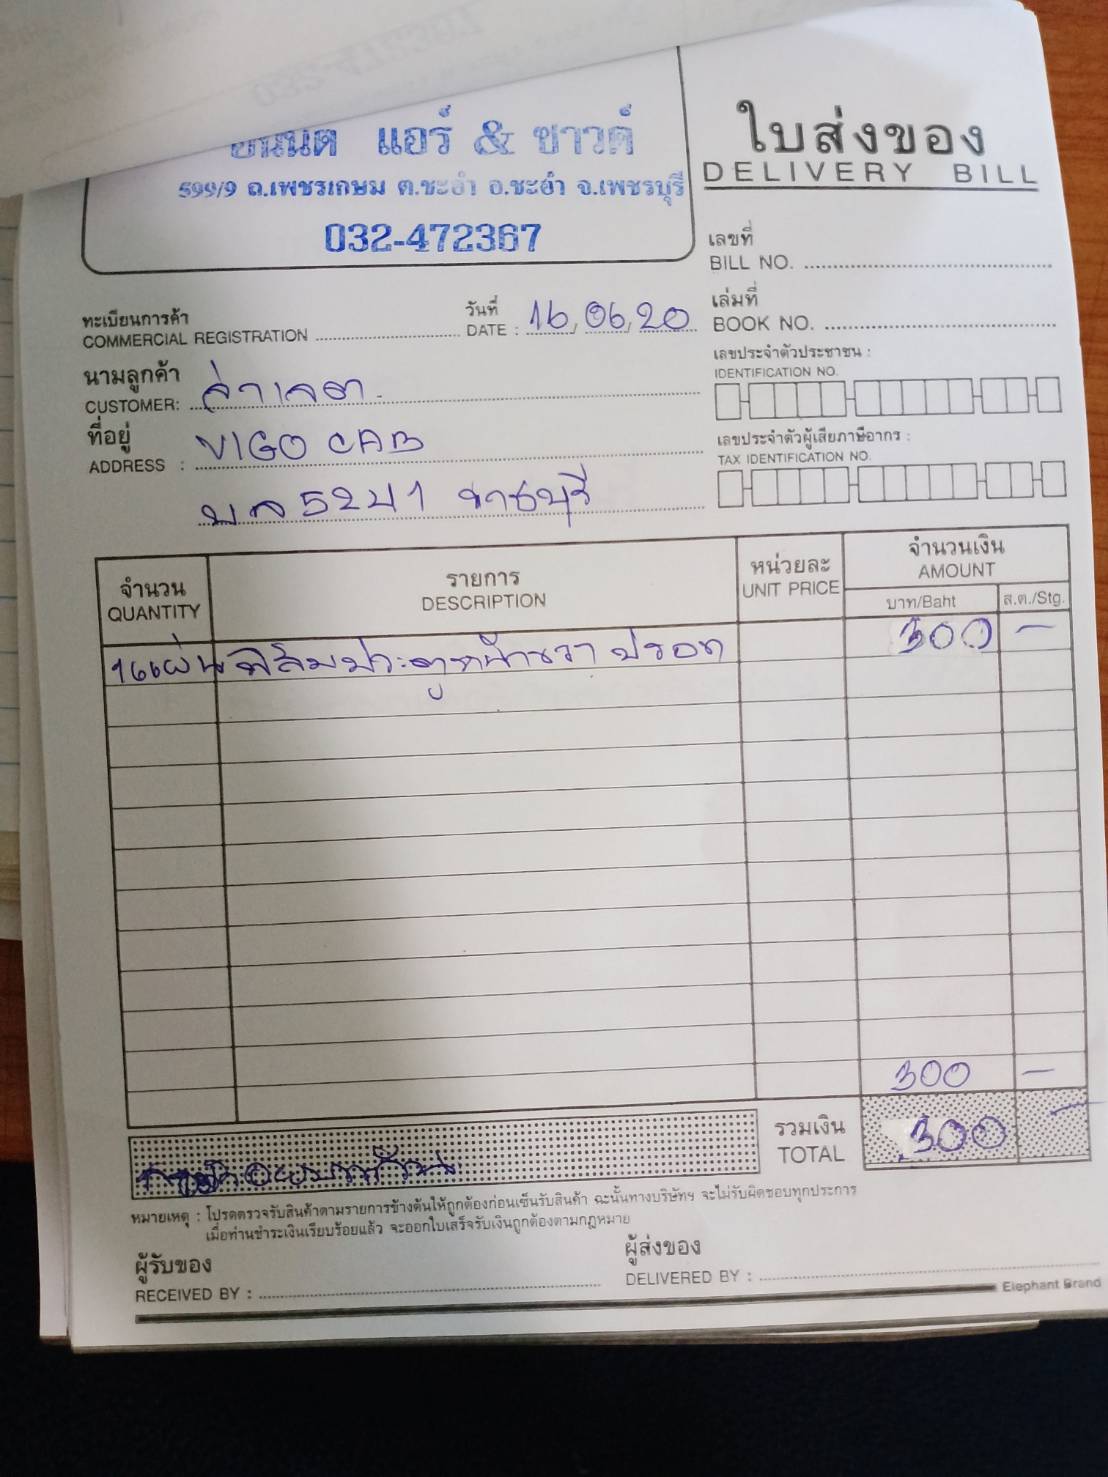 แอร์ & ซาวด์
599/9 ถ.เพชรเกษม ต.ชะอำ อ.ชะอำ จ.เพชรบุรี
032-472367
ใบส่งของ
DELIVERY BILL
เลขที่
BILL NO.
เล่มที่
BOOK NO.
ทะเบียนการค้า
COMMERCIAL REGISTRATION
วันที่
DATE : 16,06,20
นามลูกค้า
CUSTOMER:
ที่อยู่
ADDRESS : VIGO CAB
ราชบุรี
เลขประจำตัวประชาชน :
IDENTIFICATION NO.
เลขประจำตัวผู้เสียภาษีอากร :
TAX IDENTIFICATION NO.
จำนวน
QUANTITY
รายการ
DESCRIPTION
หน่วยละ
UNIT PRICE
จำนวนเงิน
AMOUNT
บาท/Baht ส.ต./Stg.
ฟิล์มประตูหน้าขวา ปรอท 300 -
300 -
รวมเงิน
TOTAL 300 -
หมายเหตุ : โปรดตรวจรับสินค้าตามรายการข้างต้นให้ถูกต้องก่อนเซ็นรับสินค้า ฉะนั้นทางบริษัทฯ จะไม่รับผิดชอบทุกประการ
เมื่อท่านชำระเงินเรียบร้อยแล้ว จะออกใบเสร็จรับเงินถูกต้องตามกฎหมาย
ผู้รับของ
RECEIVED BY :
ผู้ส่งของ
DELIVERED BY :
Elephant Brand